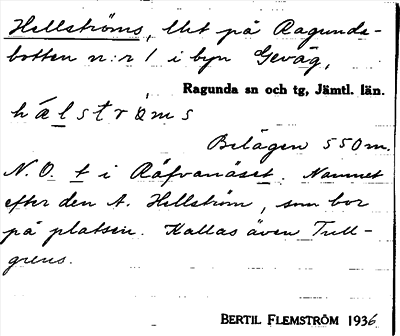 Hellströms, lht på Ragunda-
botten n:r 1 i byn Gevåg,
Ragunda sn och tg, Jämtl. län.
hälströms
Belägen 550 m.
N.O. t i Räfvanäset. Namnet
efter den A. Hellström, som bor
på platsen. Kallas även Tull-
grens.
BERTIL FLEMSTRÖM 1936